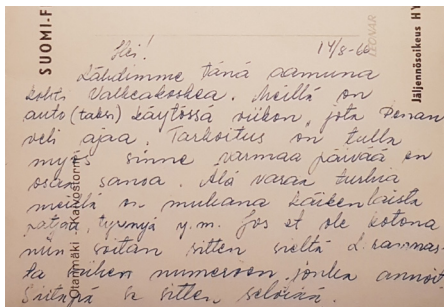 SUOMI-F
Otanmäki Kaivostorni
LEOVAR
Jäljennösoikeus HY
Hei! 14/8-66
Lähdimme tänä aamuna
kohti Valkeakoskea. Meillä on
auto (taksi) käytössä viikon, jota
veli ajaa. Tarkoitus on tulla
myös sinne varmaa päivää en
osaa sanoa. Älä varaa turhia
meillä on mukana kaikenlaista
patjoja, tyynyjä y.m. Jos et ole kotona
niin soitan sitten sieltä
ta siihen numeroon jonka annoit.
se sitten selviää.